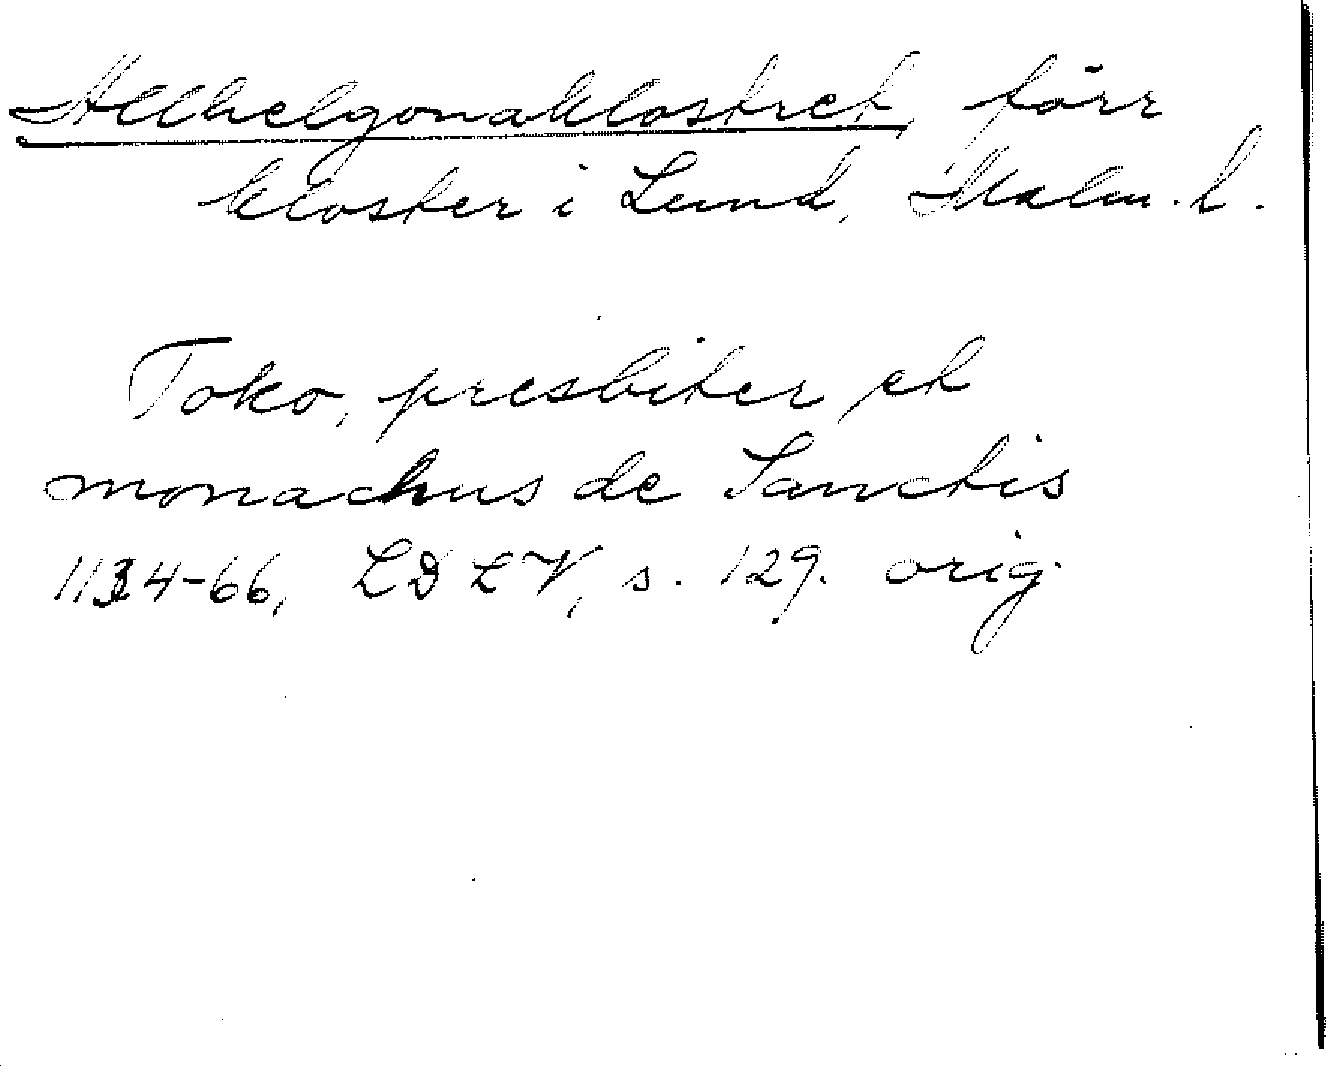 Allhelgonaklostret, förr
kloster i Lund, Malm. l.
Toko, presbiter et
monachus de Sanctis
1134-66, LDLV, s. 129. orig.